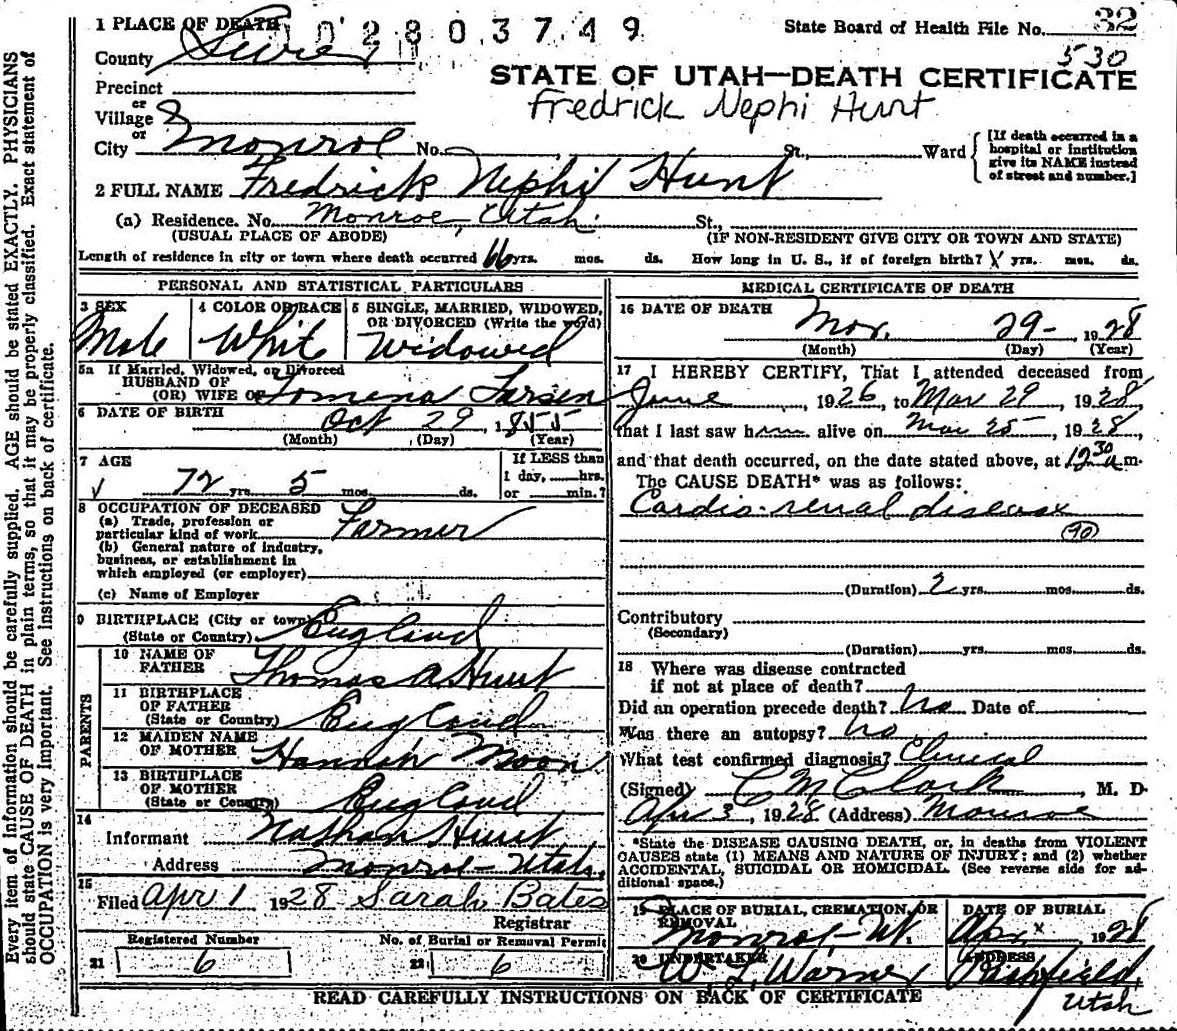 1 PLACE OF DEATH
0 2 8 0 3 7 4 9
State Board of Health File No. 32
530
County Sevier
STATE OF UTAH—DEATH CERTIFICATE
Precinct
Fredrick Nephi Hunt
or
Village
or
City Monroe No. St., Ward
[If death occurred in a
hospital or institution
give its NAME instead
of street and number.]
2 FULL NAME Fredrick Nephi Hunt
(a) Residence. No. Monroe, Utah. St.,
(USUAL PLACE OF ABODE) (IF NON-RESIDENT GIVE CITY OR TOWN AND STATE)
Length of residence in city or town where death occurred 66 yrs. mos. ds. How long in U. S., if of foreign birth? yrs. mos. ds.
PERSONAL AND STATISTICAL PARTICULARS
3 SEX
Male
4 COLOR OR RACE
White
5 SINGLE, MARRIED, WIDOWED,
OR DIVORCED (Write the word)
Widowed
5a If Married, Widowed, or Divorced
HUSBAND OF
(OR) WIFE OF Tomena Larsen
6 DATE OF BIRTH Oct 29, 1855
(Month) (Day) (Year)
7 AGE
72 yrs. 5 mos. ds.
If LESS than
1 day, hrs.
or min.?
8 OCCUPATION OF DECEASED
(a) Trade, profession or
particular kind of work Farmer
(b) General nature of industry,
business, or establishment in
which employed (or employer)
(c) Name of Employer
9 BIRTHPLACE (City or town)
(State or Country) England
PARENTS
10 NAME OF
FATHER Thomas A Hunt
11 BIRTHPLACE
OF FATHER
(State or Country) England
12 MAIDEN NAME
OF MOTHER Hannah Moon
13 BIRTHPLACE
OF MOTHER
(State or Country) England
14
Informant Nathan Hunt
Address Monroe - Utah.
15
Filed Apr 1, 1928 Sarah Bates
Registrar
Registered Number
21 6
No. of Burial or Removal Permit
22 6
MEDICAL CERTIFICATE OF DEATH
16 DATE OF DEATH
Mar. 29- 1928
(Month) (Day) (Year)
17 I HEREBY CERTIFY, That I attended deceased from
June, 1926, to Mar 29, 1928,
that I last saw him alive on Mar 25, 1928,
and that death occurred, on the date stated above, at 12 30 a m.
The CAUSE DEATH* was as follows:
Cardio-renal disease
(90)
(Duration) 2 yrs. mos. ds.
Contributory
(Secondary)
(Duration) yrs. mos. ds.
18 Where was disease contracted
if not at place of death?
Did an operation precede death? No Date of
Was there an autopsy? No
What test confirmed diagnosis? Clinical
(Signed) C M Clark, M. D.
Apr 3, 1928 (Address) Monroe
*State the DISEASE CAUSING DEATH, or, in deaths from VIOLENT
CAUSES state (1) MEANS AND NATURE OF INJURY; and (2) whether
ACCIDENTAL, SUICIDAL OR HOMICIDAL. (See reverse side for ad-
ditional space.)
19 PLACE OF BURIAL, CREMATION, OR
REMOVAL
Monroe, Ut.
DATE OF BURIAL
Apr. x 1928
20 UNDERTAKER
W. L. Warner
ADDRESS
Richfield,
Utah
READ CAREFULLY INSTRUCTIONS ON BACK OF CERTIFICATE
Every item of information should be carefully supplied. AGE should be stated EXACTLY. PHYSICIANS
should state CAUSE OF DEATH in plain terms, so that it may be properly classified. Exact statement of
OCCUPATION is very important. See instructions on back of certificate.